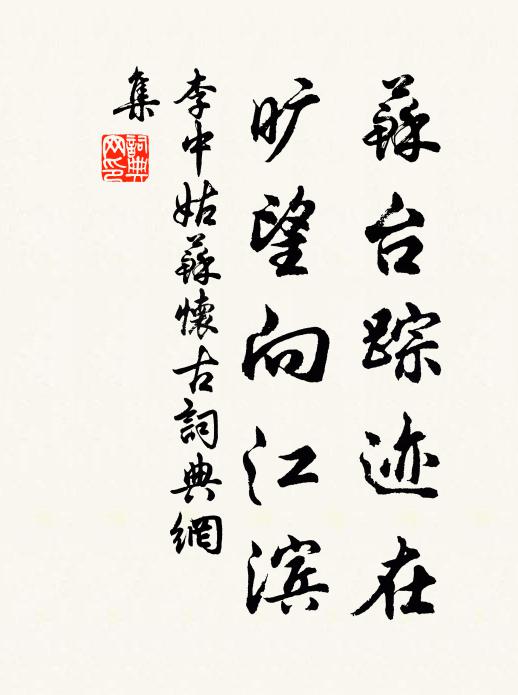 蘇台踪迹在
旷望向江滨
李中姑蘇懷古詞典網
集
詞典网印